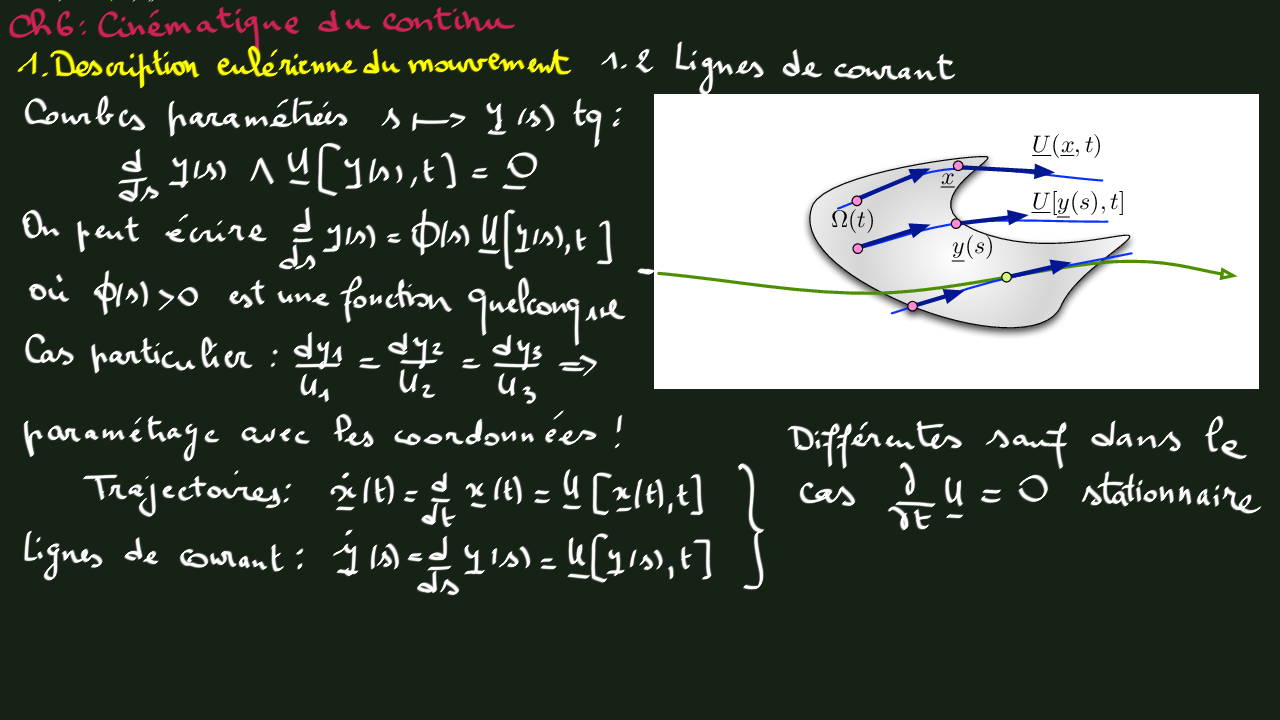 Ch6: Cinématique du continu
1. Description eulérienne du mouvement 1.2 Lignes de courant
Courbes paramétrées s ⟼ y(s) tq:
d/ds y(s) ∧ U[y(s),t] = 0
On peut écrire d/ds y(s) = ϕ(s) U[y(s),t]
où ϕ(s)>0 est une fonction quelconque
Cas particulier : dy1/U1 = dy2/U2 = dy3/U3 =>
paramétrage avec les coordonnées !
Trajectoires: ẋ(t) = d/dt x(t) = U[x(t),t]
Lignes de courant: ẏ(s) = d/ds y(s) = U[y(s),t]
U(x,t)
x
U[y(s),t]
Ω(t)
y(s)
Différentes sauf dans le
cas ∂/∂t U = 0 stationnaire